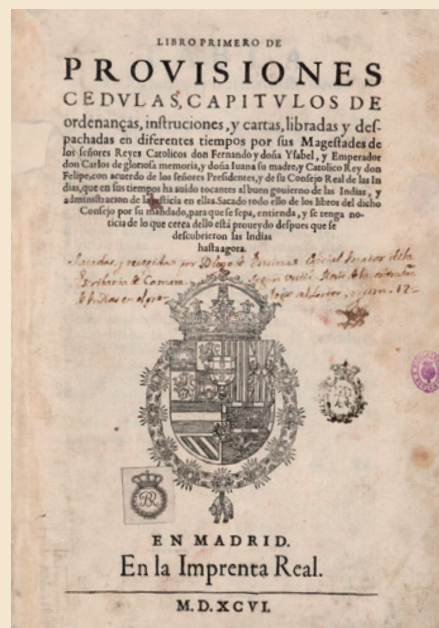 LIBRO PRIMERO DE
PROVISIONES
CEDVLAS, CAPITVLOS DE
ordenanças, instruciones, y cartas, libradas y des-
pachadas en diferentes tiempos por sus Magestades de
los señores Reyes Catolicos don Fernando y doña Ysabel, y Emperador
don Carlos de gloriosa memoria, y doña Iuana su madre, y Catolico Rey don
Felipe, con acuerdo de los señores Presidentes, y de su Consejo Real de las In
dias, que en sus tiempos ha auido tocantes al buen gouierno de las Indias, y
administracion de la justicia en ellas. Sacado todo ello de los libros del dicho
Consejo por su mandado, para que se sepa, entienda, y se tenga no-
ticia de lo que cerca dello está proueydo despues que se
descubrieron las Indias
hasta agora.
por Diego de Official
de Camara
BR
EN MADRID.
En la Imprenta Real.
M.D.XCVI.